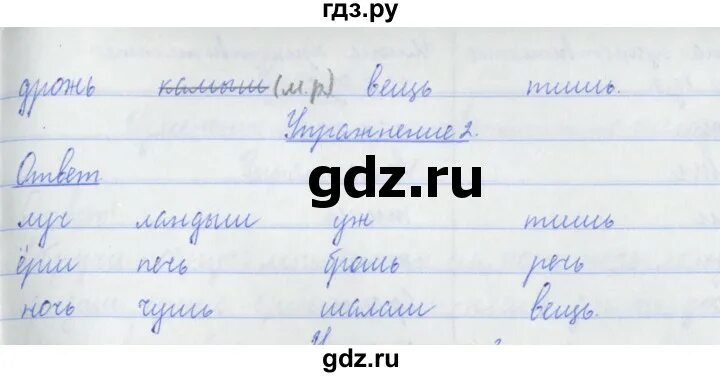 гдз.ру
дрожь камыш (м.р) вещь тишь.
Упражнение 2.
Ответ
gdz.ru
луч ландыш уж тишь
ёрш печь брошь речь
ночь чушь шалаш вещь.
gdz.ru